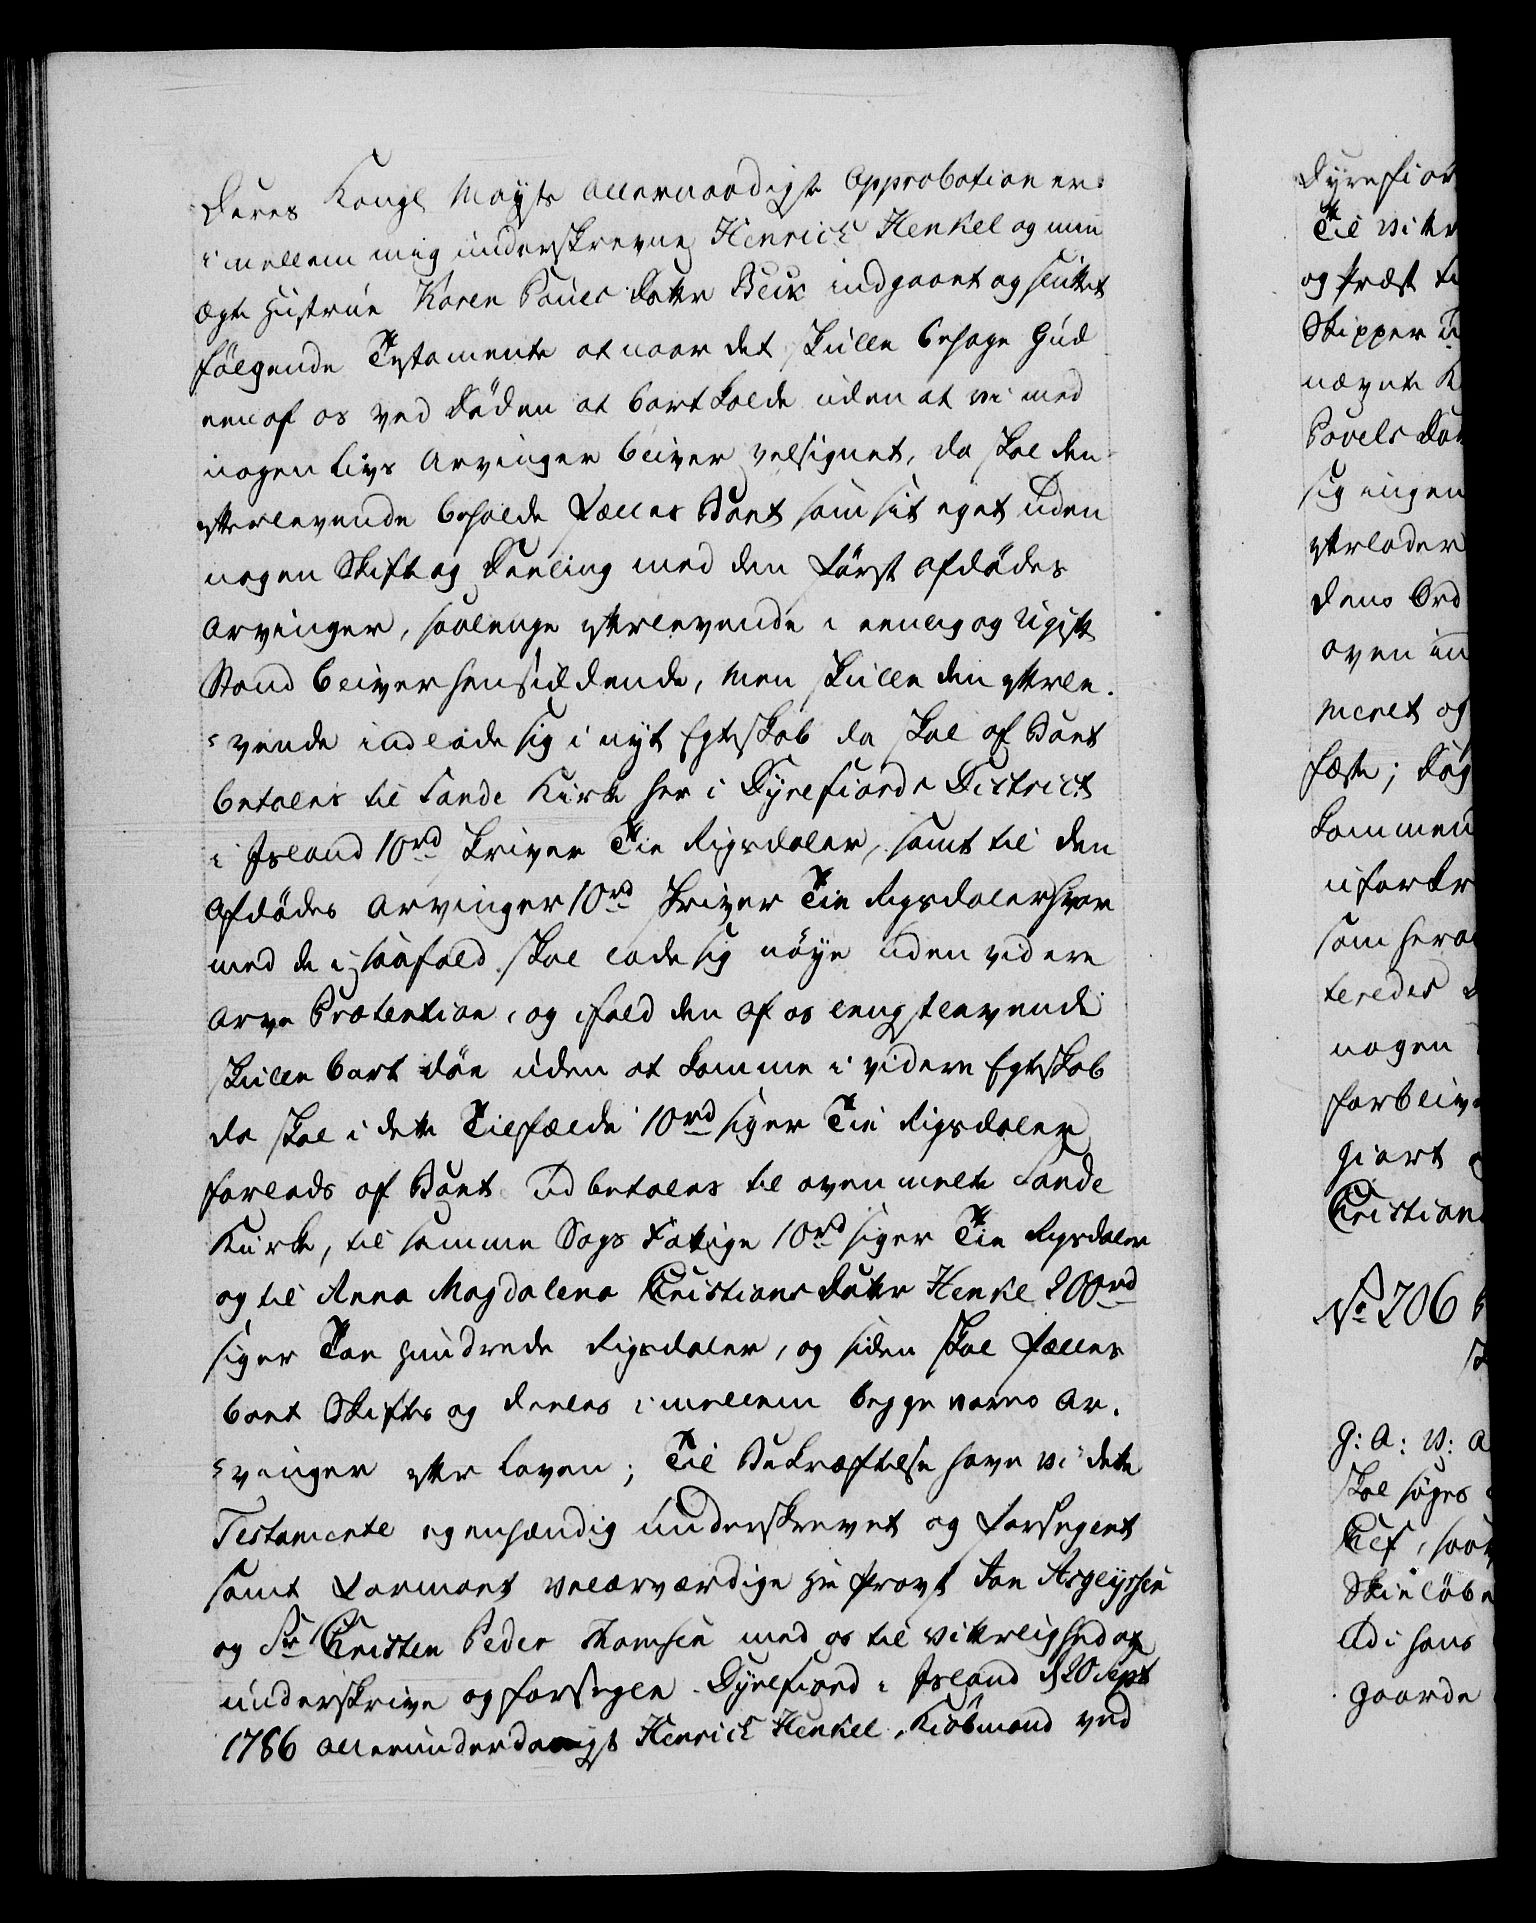 Deres Kongl Mayts Allernaadigste Approbation er
imellem mig underskrevne Henrich Henkel og min
ægte Hustrue Karen Poules Datter Buck indgaaet og sluttet
følgende Testamente at naar det skulle behage Gud
een af os ved Døden at bortkalde uden at vi med
nogen Livs Arvinger bliver velsignet, da skal den
efterlevende beholde Fælles Boet som sit eget uden
nogen Skifte og Deeling med den først afdødes
Arvinger, saalenge efterlevende i eenlig og Ugift
Stand bliver hensiddende, Men skulle den efterle-
vende indlade sig i nyt Egteskab da skal af Boet
betales til Sande Kirke her i Dyrefiords District
i Island 10rd skriver Tie Rigsdaler, samt til den
Afdødes Arvinger 10rd skriver Tie Rigsdaler hvor
med de i saafald skal lade sig nøye uden videre
Arve Prætention, og ifald den af os lengstlevende
skulle bort døe uden at komme i videre Egteskab
da skal i dette Tilfælde 10rd siger Tie Rigsdaler
forlods af Boet udbetales til ovenmelte Sande
Kirke, til samme Sogs Fattige 10rd siger Tie Rigsdaler
og til Anna Magdalena Christians Datter Henkel 200rd
siger Toe hundrede Rigsdaler, og siden skal fælles
boet Skiftes og deeles imellem begge vores Ar-
vinger efter Loven; Til Bekræftelse have vi dette
Testamente egenhændig underskrevet og forseglet
samt formaaet velærværdige Hr Provst Jon Asgeyrsen
og Sr Christen Peder Thomsen med os til Vitterlighed at
underskrive og forsegle. Dyrefiord i Island d 20 Sept
1786 allerunderdanigst Henrich Henkel, Kiøbmand ved
Dyrefior
Til Vitte
og Præst
Skipper
nævnte
Povels Dat
sig ingen
efterlader
dens Ord
oven
meret og
fæste; dog
kommen
som her
nogen
forbliv
giort
Christian
No 206
G: A: V: A
skal søges
Skieløb
udi hans
Gaarde